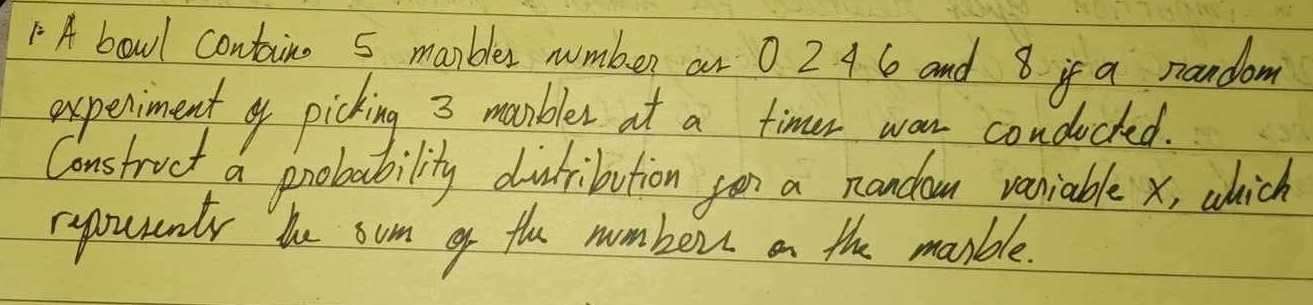 1. A bowl contains 5 marbles number as 0 2 4 6 and 8 if a random
experiment of picking 3 marbles at a times was conducted.
Construct a probability distribution for a random variable X, which
represents the sum of the numbers on the marble.